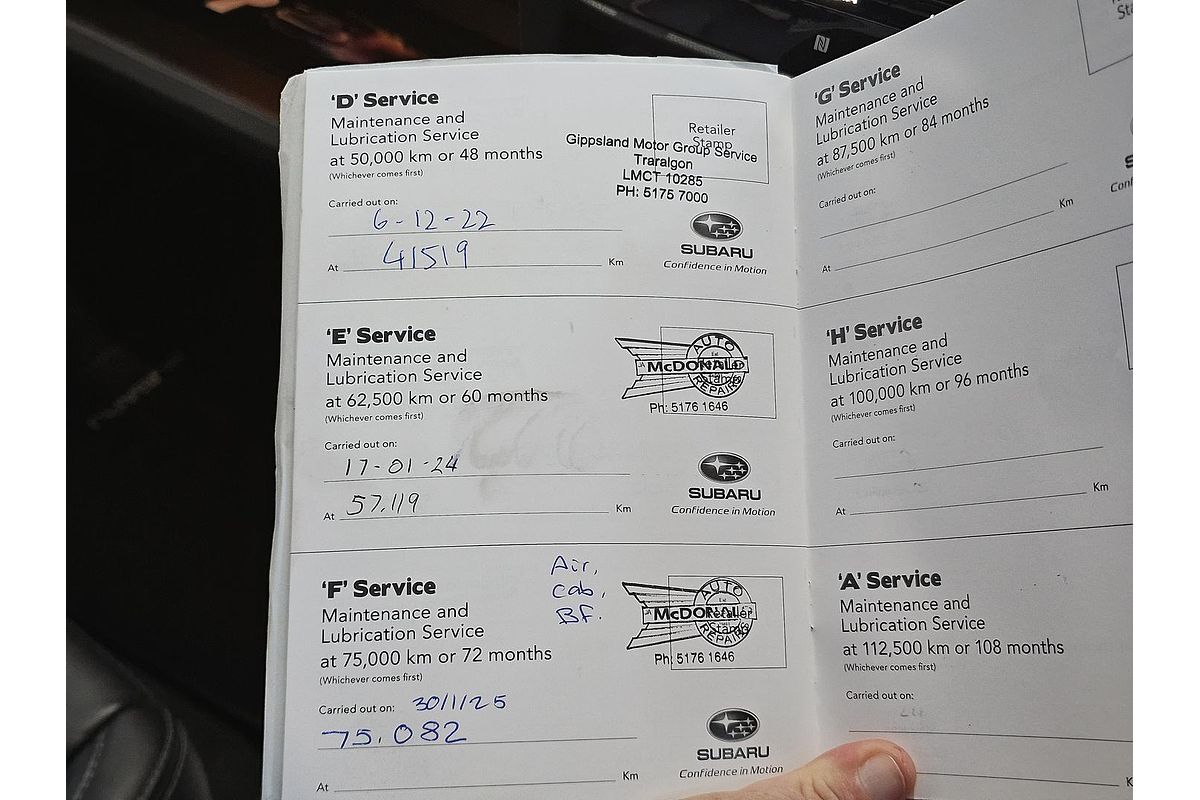 'D' Service
Maintenance and
Lubrication Service
at 50,000 km or 48 months
(Whichever comes first)
Retailer
Stamp
Gippsland Motor Group Service
Traralgon
LMCT 10285
PH: 5175 7000
Carried out on:
6-12-22
At 41519 Km
SUBARU
Confidence in Motion
'E' Service
Maintenance and
Lubrication Service
at 62,500 km or 60 months
(Whichever comes first)
AUTO
McDONALD
REPAIRS
Ph: 5176 1646
Carried out on:
17-01-24
At 57.119 Km
SUBARU
Confidence in Motion
'F' Service
Maintenance and
Lubrication Service
at 75,000 km or 72 months
(Whichever comes first)
Air,
cab,
BF.
AUTO
McDONALD
Retailer
Stamp
REPAIRS
Ph: 5176 1646
Carried out on: 30/1/25
75.082
At Km
SUBARU
Confidence in Motion
'G' Service
Maintenance and
Lubrication Service
at 87,500 km or 84 months
(Whichever comes first)
Carried out on:
At Km
'H' Service
Maintenance and
Lubrication Service
at 100,000 km or 96 months
(Whichever comes first)
Carried out on:
At Km
'A' Service
Maintenance and
Lubrication Service
at 112,500 km or 108 months
(Whichever comes first)
Carried out on:
At